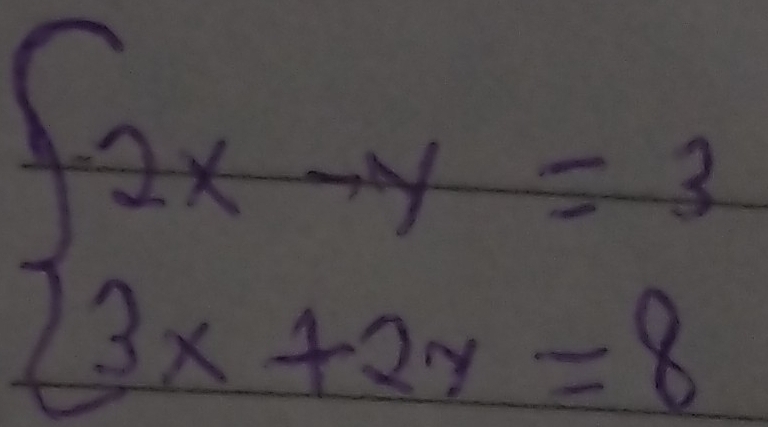 2x - y = 3
3x + 2y = 8